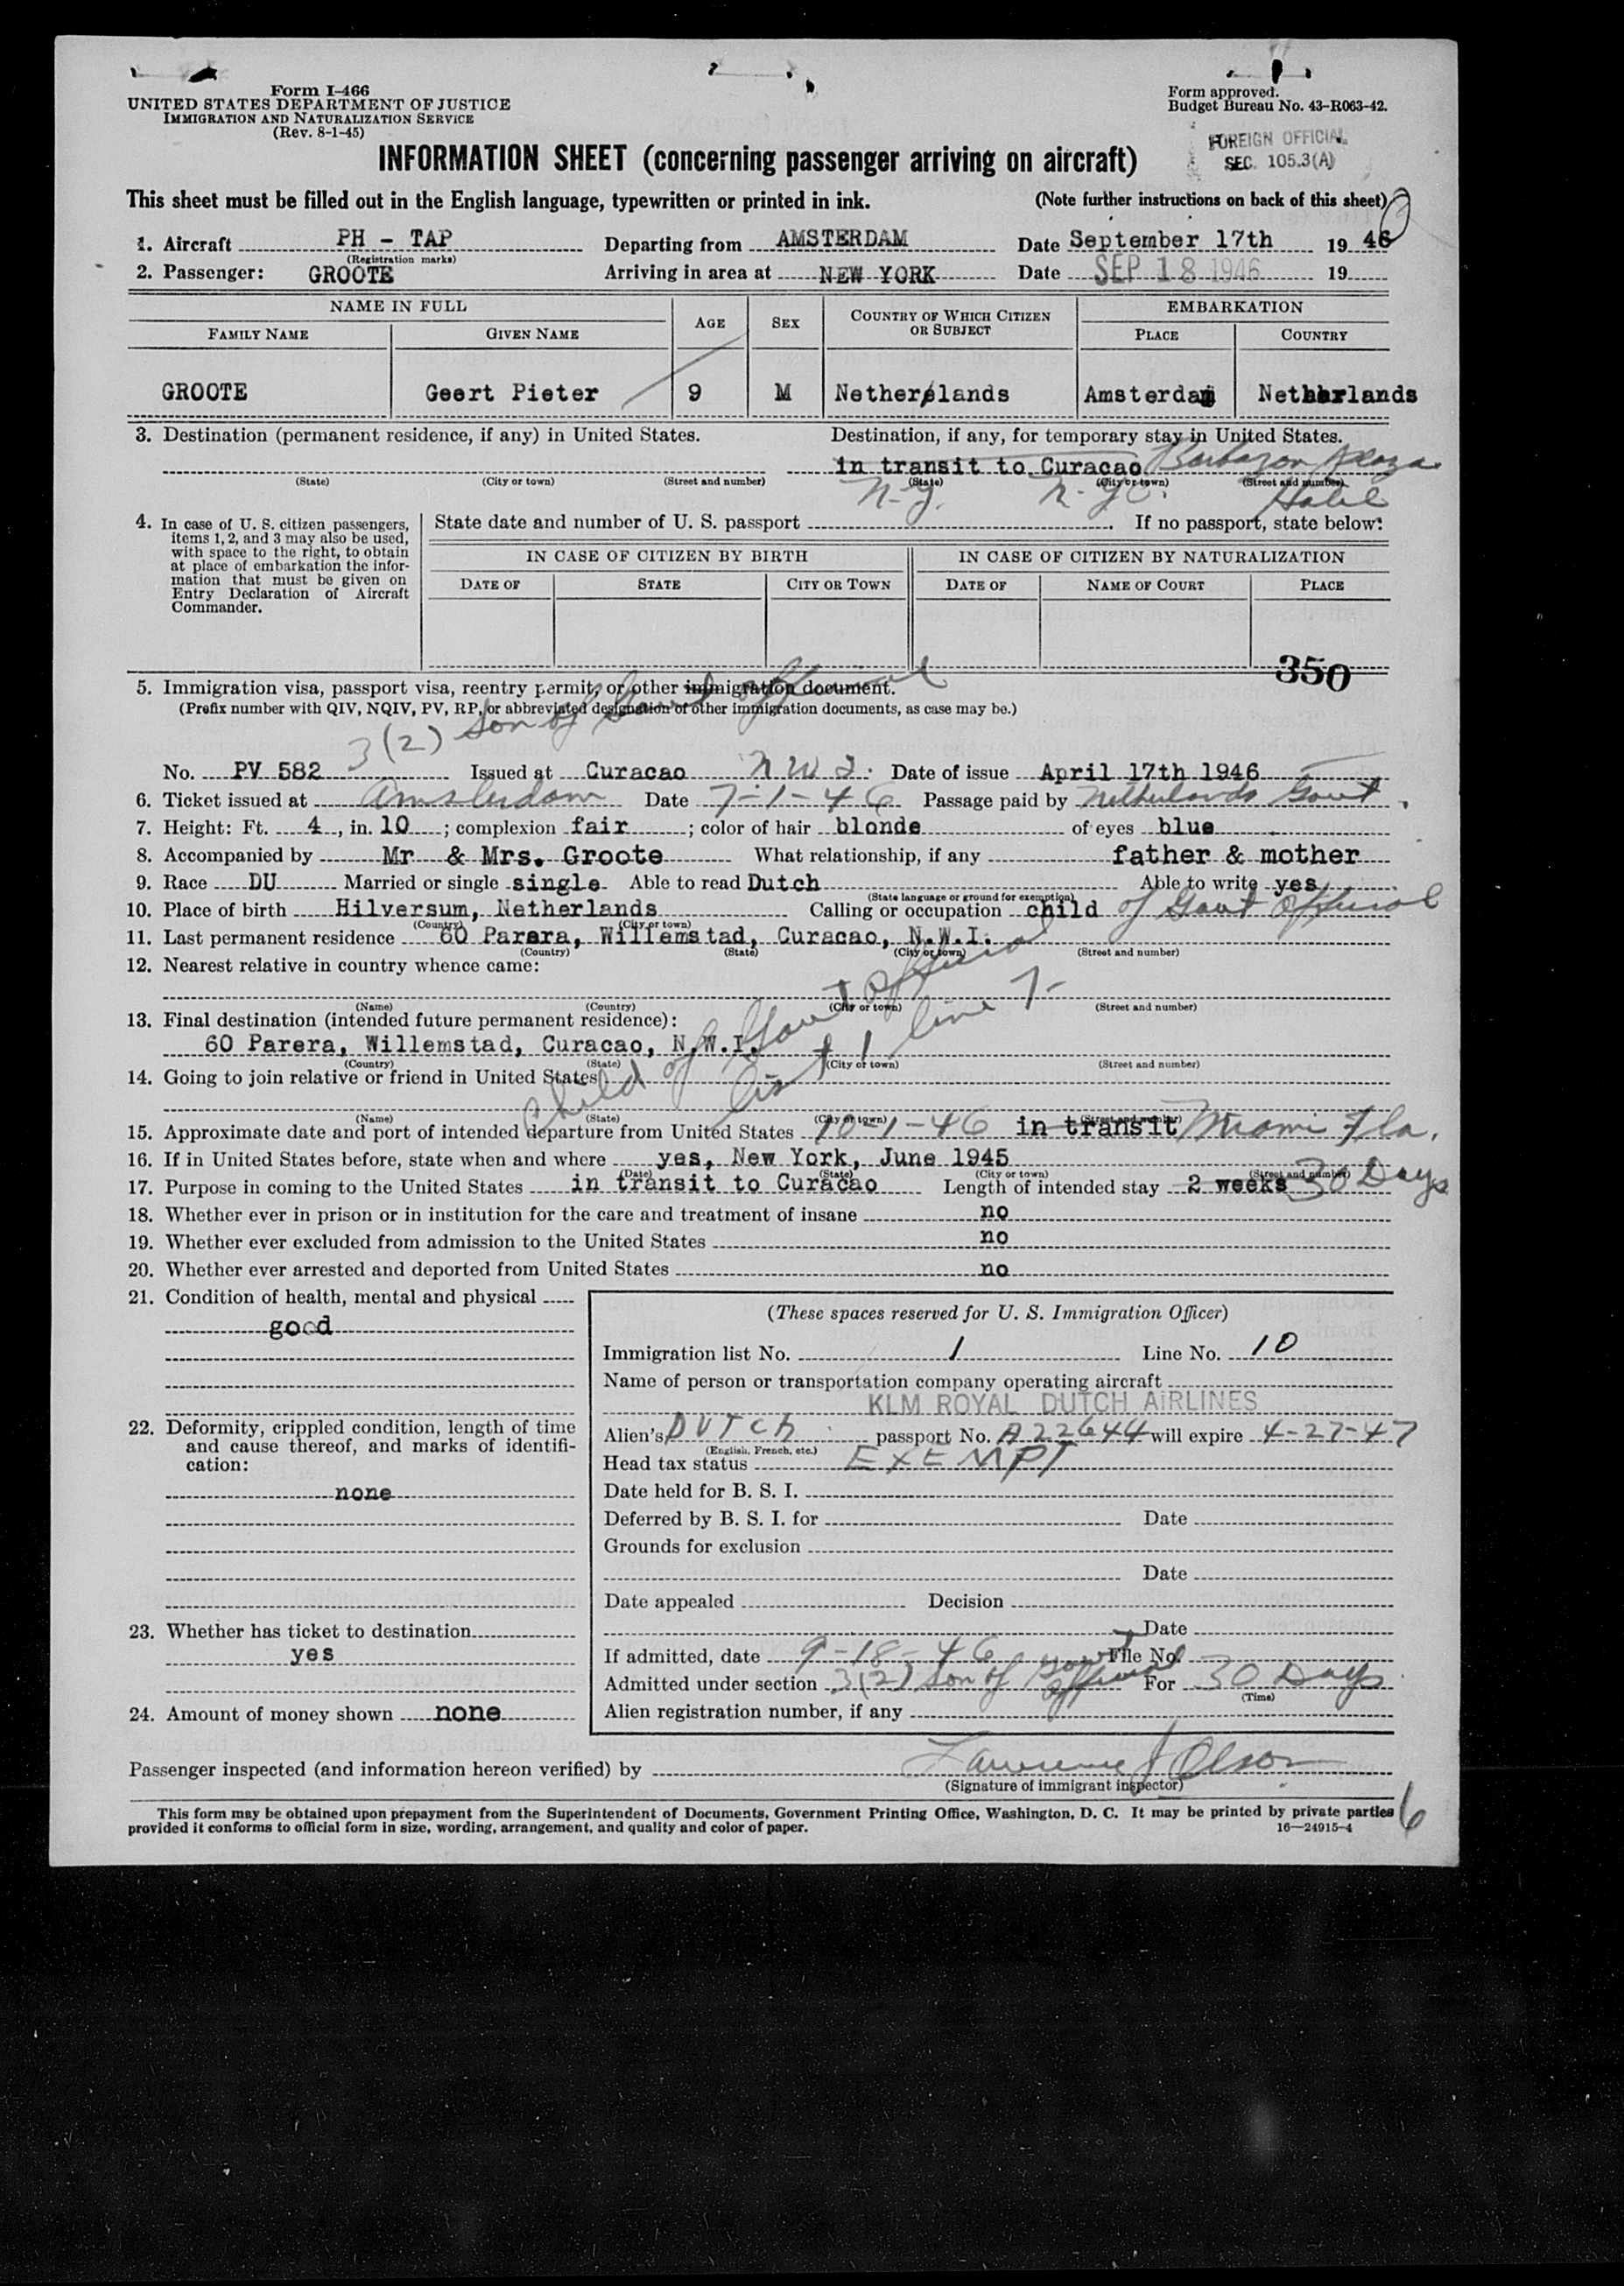 Form I-466
UNITED STATES DEPARTMENT OF JUSTICE
IMMIGRATION AND NATURALIZATION SERVICE
(Rev. 8-1-45)
Form approved.
Budget Bureau No. 43-R063-42.
FOREIGN OFFICIAL
SEC. 105.3(A)
INFORMATION SHEET (concerning passenger arriving on aircraft)
This sheet must be filled out in the English language, typewritten or printed in ink. (Note further instructions on back of this sheet)
1. Aircraft PH - TAP Departing from AMSTERDAM Date September 17th 19 46
(Registration marks)
2. Passenger: GROOTE Arriving in area at NEW YORK Date SEP 18 1946 19
NAME IN FULL AGE SEX COUNTRY OF WHICH CITIZEN OR SUBJECT EMBARKATION
FAMILY NAME GIVEN NAME PLACE COUNTRY
GROOTE Geert Pieter 9 M Netherlands Amsterdam Netherlands
3. Destination (permanent residence, if any) in United States. Destination, if any, for temporary stay in United States.
in transit to Curacao Barbazon Plaza
(State) (City or town) (Street and number) (State) (City or town) (Street and number)
N-Y. N-Y C. Hotel
4. In case of U. S. citizen passengers, items 1, 2, and 3 may also be used, with space to the right, to obtain at place of embarkation the information that must be given on Entry Declaration of Aircraft Commander.
State date and number of U. S. passport . If no passport, state below:
IN CASE OF CITIZEN BY BIRTH IN CASE OF CITIZEN BY NATURALIZATION
DATE OF STATE CITY OR TOWN DATE OF NAME OF COURT PLACE
350
5. Immigration visa, passport visa, reentry permit, or other immigration document.
(Prefix number with QIV, NQIV, PV, RP, or abbreviated designation of other immigration documents, as case may be.)
3(2) Son of Govt official
No. PV 582 Issued at Curacao N W I. Date of issue April 17th 1946
6. Ticket issued at Amsterdam Date 7-1-46 Passage paid by Netherlands Govt.
7. Height: Ft. 4, in. 10; complexion fair; color of hair blonde of eyes blue
8. Accompanied by Mr & Mrs. Groote What relationship, if any father & mother
9. Race DU Married or single single Able to read Dutch Able to write yes
(State language or ground for exemption)
10. Place of birth Hilversum, Netherlands Calling or occupation child of Govt official
(Country) (City or town)
11. Last permanent residence 60 Parera, Willemstad, Curacao, N.W.I.
(Country) (State) (City or town) (Street and number)
12. Nearest relative in country whence came:
(Name) (Country) (City or town) (Street and number)
13. Final destination (intended future permanent residence):
60 Parera, Willemstad, Curacao, N.W.I.
(Country) (State) (City or town) (Street and number)
14. Going to join relative or friend in United States
Child of Govt official
list 1 line 7-
(Name) (State) (City or town) (Street and number)
15. Approximate date and port of intended departure from United States 10-1-46 in transit Miami Fla.
16. If in United States before, state when and where yes, New York, June 1945
(Date) (State) (City or town) (Street and number)
17. Purpose in coming to the United States in transit to Curacao Length of intended stay 2 weeks 30 Days
18. Whether ever in prison or in institution for the care and treatment of insane no
19. Whether ever excluded from admission to the United States no
20. Whether ever arrested and deported from United States no
21. Condition of health, mental and physical
good
22. Deformity, crippled condition, length of time and cause thereof, and marks of identification:
none
23. Whether has ticket to destination
yes
24. Amount of money shown none
(These spaces reserved for U. S. Immigration Officer)
Immigration list No. 1 Line No. 10
Name of person or transportation company operating aircraft
KLM ROYAL DUTCH AIRLINES
Alien's DUTCH passport No. A22644 will expire 4-27-47
(English, French, etc.)
Head tax status EXEMPT
Date held for B. S. I.
Deferred by B. S. I. for Date
Grounds for exclusion
Date
Date appealed Decision
Date
If admitted, date 9-18-46 File No.
Admitted under section 3(2) Son of Govt official For 30 Days
(Time)
Alien registration number, if any
Passenger inspected (and information hereon verified) by Lawrence J Olson
(Signature of immigrant inspector)
This form may be obtained upon prepayment from the Superintendent of Documents, Government Printing Office, Washington, D. C. It may be printed by private parties
provided it conforms to official form in size, wording, arrangement, and quality and color of paper. 16—24915-4
6